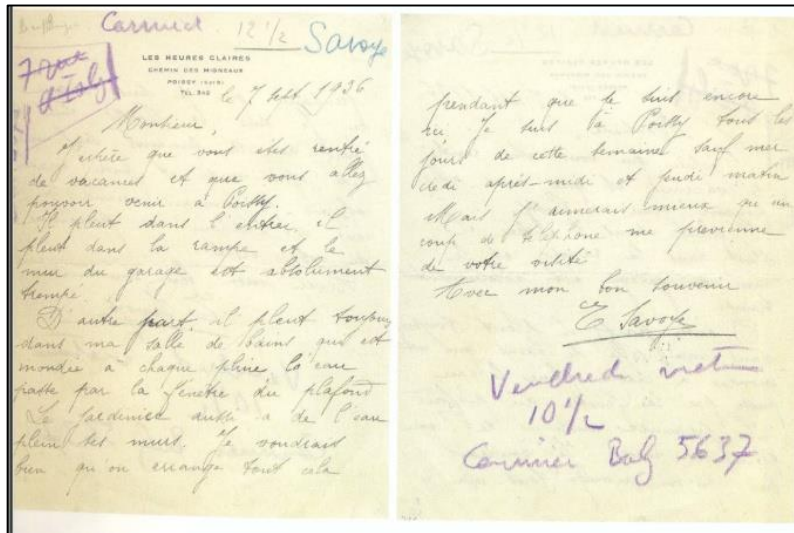 12 1/2
Savoye
LES HEURES CLAIRES
CHEMIN DES MIGNEAUX
POISSY (S.&O.)
TEL. 340
le 7 Sept. 1936
Monsieur,
J'espère que vous êtes rentré
de vacances et que vous allez
pouvoir venir à Poissy.
Il pleut dans l'entrée, il
pleut dans la rampe et le
mur du garage est absolument
trempé.
D'autre part il pleut toujours
dans ma salle de bains qui est
inondée à chaque pluie. L'eau
passe par la fenêtre du plafond
Le jardinier aussi a de l'eau
plein ses murs. Je voudrais
bien qu'on arrange tout cela
pendant que je suis encore
ici Je suis à Poissy tous les
jours de cette semaine sauf mer
credi après-midi et jeudi matin
Mais j'aimerais mieux qu'un
coup de téléphone me prévienne
de votre visite
Avec mon bon souvenir
E Savoye
Vendredi
10 1/2
5637